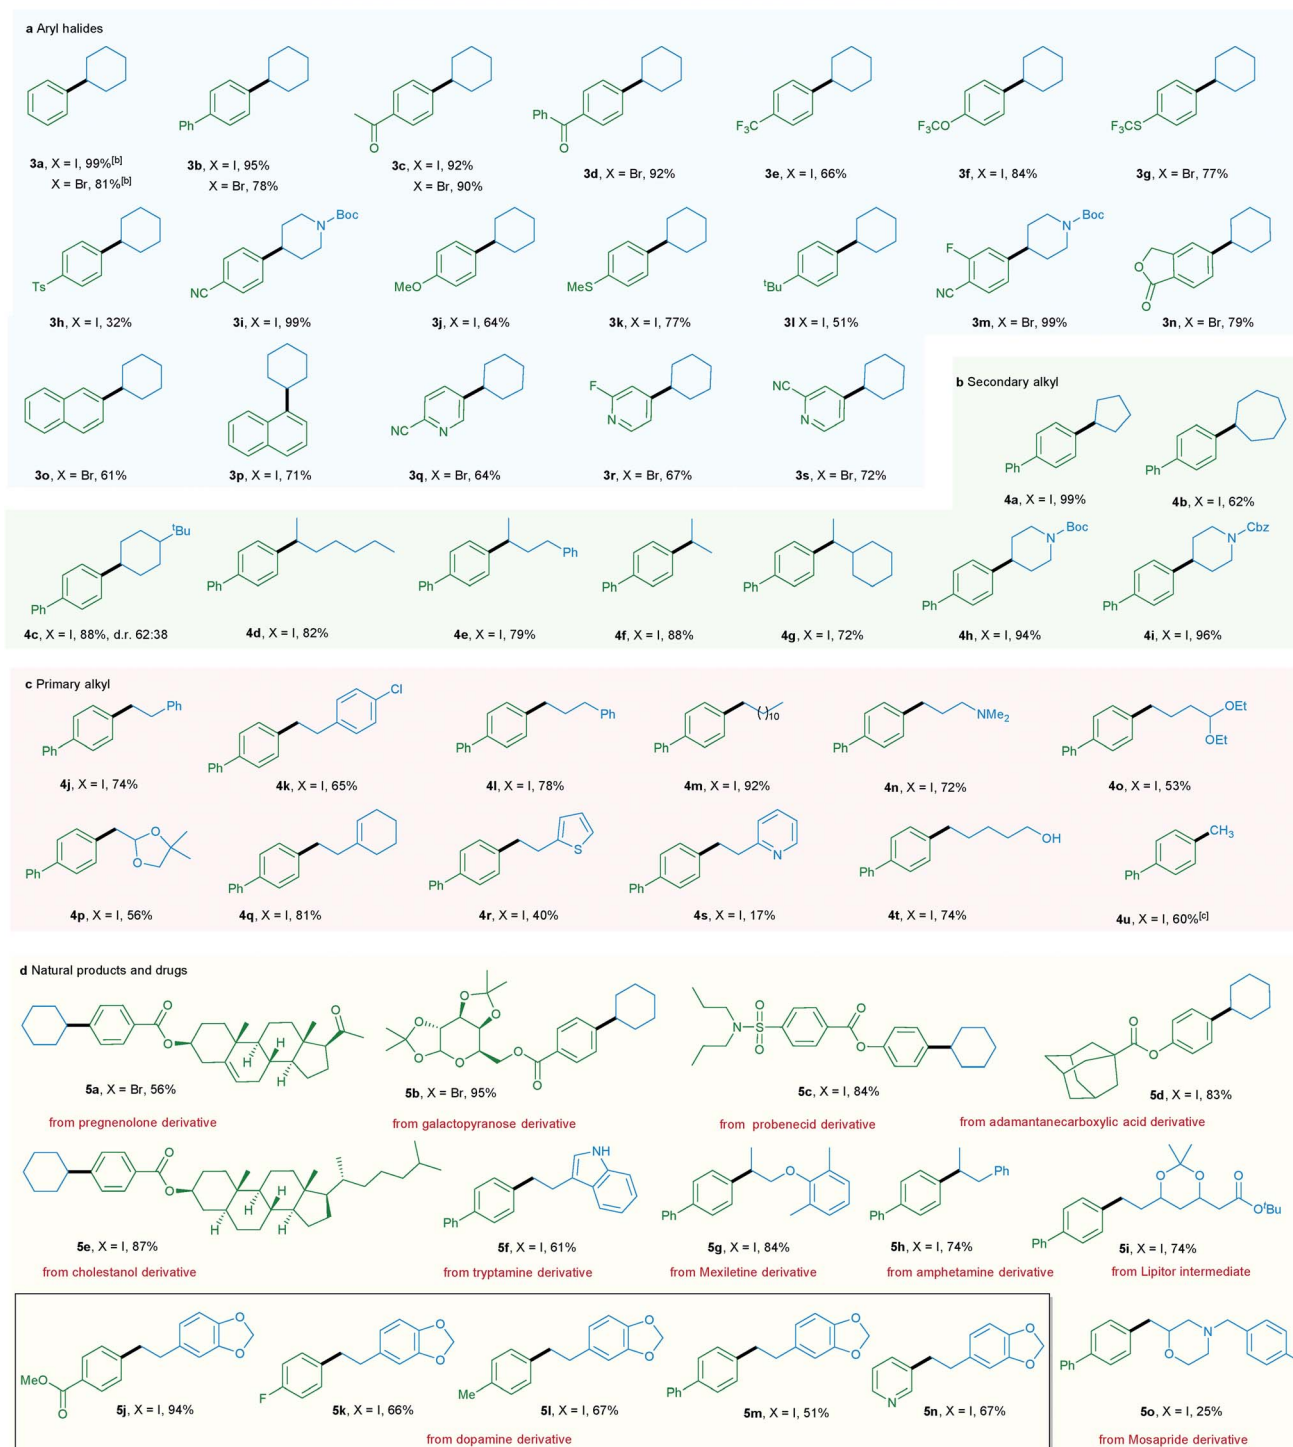 a Aryl halides
Ph
O
Ph
O
F₃C
F₃CO
F₃CS
3a, X = I, 99%[b]
X = Br, 81%[b]
3b, X = I, 95%
X = Br, 78%
3c, X = I, 92%
X = Br, 90%
3d, X = Br, 92%
3e, X = I, 66%
3f, X = I, 84%
3g, X = Br, 77%
Ts
N
Boc
NC
MeO
MeS
ᵗBu
N
Boc
F
NC
O
O
3h, X = I, 32%
3i, X = I, 99%
3j, X = I, 64%
3k, X = I, 77%
3l X = I, 51%
3m, X = Br, 99%
3n, X = Br, 79%
NC
N
F
N
NC
N
3o, X = Br, 61%
3p, X = I, 71%
3q, X = Br, 64%
3r, X = Br, 67%
3s, X = Br, 72%
b Secondary alkyl
Ph
Ph
4a, X = I, 99%
4b, X = I, 62%
ᵗBu
Ph
Ph
Ph
Ph
Ph
Ph
N
Boc
Ph
N
Cbz
Ph
4c, X = I, 88%, d.r. 62:38
4d, X = I, 82%
4e, X = I, 79%
4f, X = I, 88%
4g, X = I, 72%
4h, X = I, 94%
4i, X = I, 96%
c Primary alkyl
Ph
Ph
Cl
Ph
Ph
Ph
( )10
Ph
NMe₂
Ph
OEt
OEt
Ph
4j, X = I, 74%
4k, X = I, 65%
4l, X = I, 78%
4m, X = I, 92%
4n, X = I, 72%
4o, X = I, 53%
O
O
Ph
Ph
S
Ph
N
Ph
OH
Ph
CH₃
Ph
4p, X = I, 56%
4q, X = I, 81%
4r, X = I, 40%
4s, X = I, 17%
4t, X = I, 74%
4u, X = I, 60%[c]
d Natural products and drugs
O
O
O
H
H
H
5a, X = Br, 56%
from pregnenolone derivative
O
O
O
O
O
O
O
5b, X = Br, 95%
from galactopyranose derivative
N
S
O
O
O
O
5c, X = I, 84%
from probenecid derivative
O
O
5d, X = I, 83%
from adamantanecarboxylic acid derivative
O
O
H
H
H
H
5e, X = I, 87%
from cholestanol derivative
NH
Ph
5f, X = I, 61%
from tryptamine derivative
O
Ph
5g, X = I, 84%
from Mexiletine derivative
Ph
Ph
5h, X = I, 74%
from amphetamine derivative
O
O
O
OᵗBu
Ph
5i, X = I, 74%
from Lipitor intermediate
O
O
MeO
O
5j, X = I, 94%
O
O
F
5k, X = I, 66%
O
O
Me
5l, X = I, 67%
O
O
Ph
5m, X = I, 51%
O
O
N
5n, X = I, 67%
from dopamine derivative
N
O
Ph
5o, X = I, 25%
from Mosapride derivative